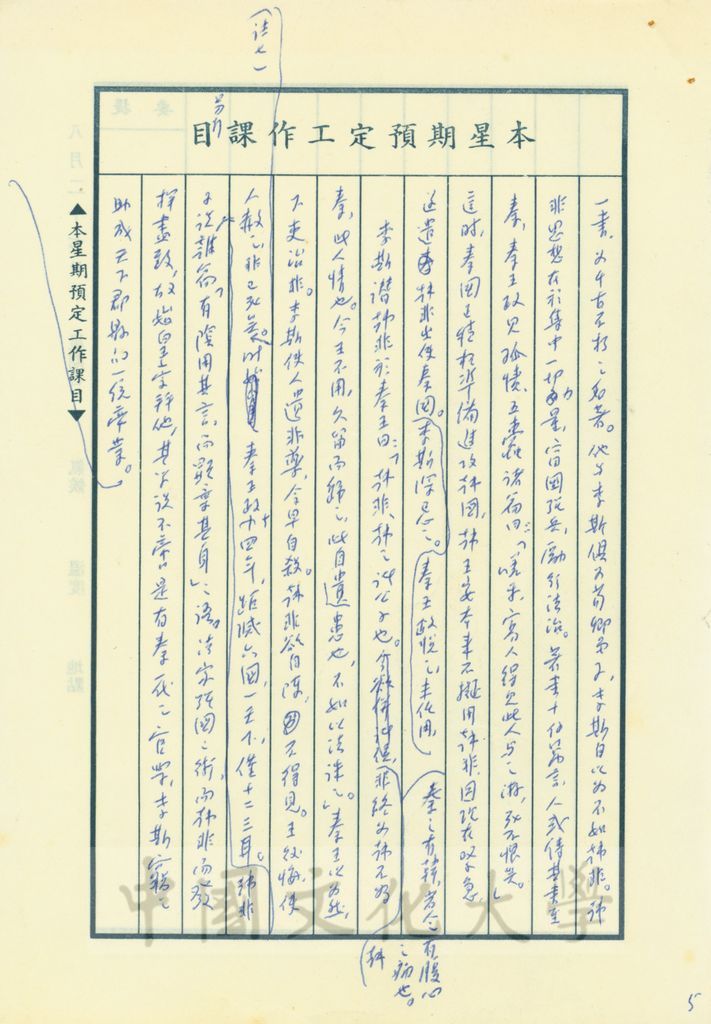 本星期預定工作課目
一書,為千古不朽之名著。他與李斯俱為荀卿弟子,李斯自以為不如韓非。韓
非思想在於集中一切力量,富國強兵,勵行法治。著書十餘萬言,人或傳其書至
秦,秦王政見孤憤、五蠹諸篇曰:「嗟乎,寡人得見此人與之游,死不恨矣。」
這時,秦國已積極準備進攻韓國,韓王安本來不擬用韓非,因現在情急
迺遣韓非出使秦國。李斯深忌之。(秦王政悅之,未任用,)
李斯譖韓非於秦王曰:「韓非,韓之諸公子也。非終為韓不為
秦之有韓,若人之有腹心之病也。
秦,此人情也。今王不用,久留而歸之,此自遺患也,不如以法誅之。」秦王以為然,
下吏治非。李斯使人遺非藥,令早自殺。韓非欲自陳,不得見。王後悔,使
人赦之,非已死矣。時秦王政十四年,距滅六國一天下,僅十二三耳。韓非
子說難篇,「有陰用其言,而顯棄其身」之語。法家強國之術,而韓非而發
揮盡致,故始皇宇
助成天下郡縣的一統帝業。
(註七)
另行
▲本星期預定工作課目▼
中國文化大學
5